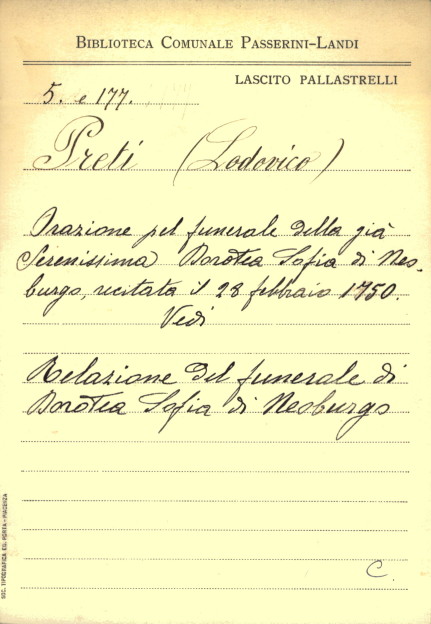 BIBLIOTECA COMUNALE PASSERINI-LANDI
LASCITO PALLASTRELLI
5. e 177.
Preti (Lodovico)
Orazione pel funerale della già
Serenissima Dorotea Sofia di Neo-
burgo, recitata il 28 febbraio 1750.
Vedi
Relazione del funerale di
Dorotea Sofia di Neoburgo
C.
SOC. TIPOGRAFICA ED. PORTA - PIACENZA